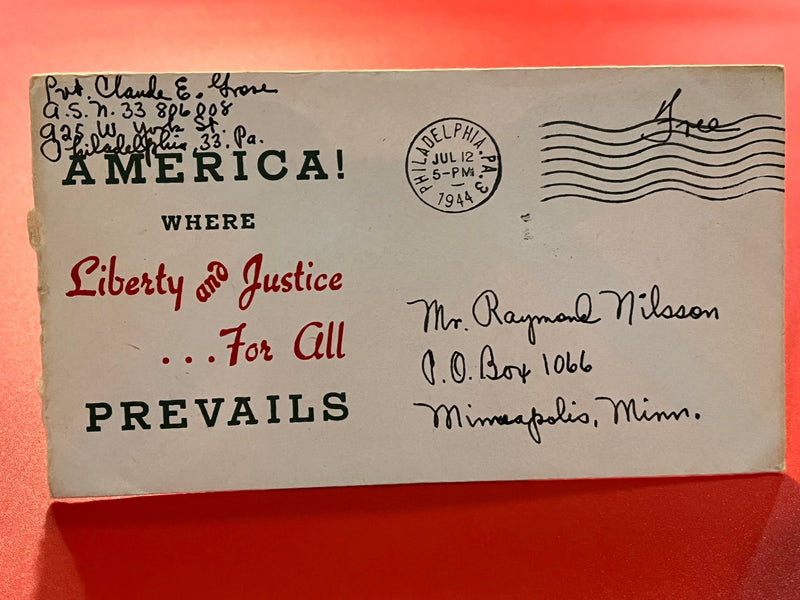 Pvt. Claude E. Grove
A.S.N. 33 806 008
925 W. York St.
Philadelphia 33. Pa.
AMERICA!
WHERE
Liberty and Justice
...For All
PREVAILS
PHILADELPHIA, PA. 3
JUL 12
5-PM
1944
Free
Mr. Raymond Nilsson
P.O. Box 1066
Minneapolis, Minn.